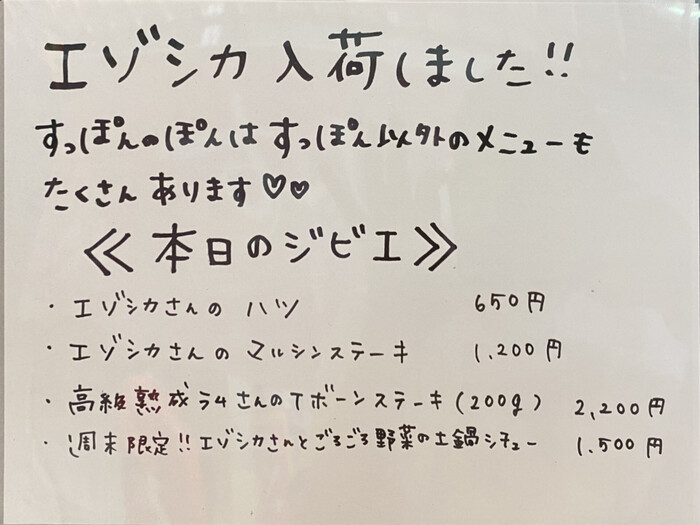 エゾシカ入荷しました!!
すっぽんのぽんはすっぽん以外のメニューも
たくさんあります♡♡
≪本日のジビエ≫
・エゾシカさんの ハツ 650円
・エゾシカさんの マルシンステーキ 1,200円
・高級熟成ラムさんのTボーンステーキ(200g) 2,200円
・週末限定!!エゾシカさんとごろごろ野菜の土鍋シチュー 1,500円